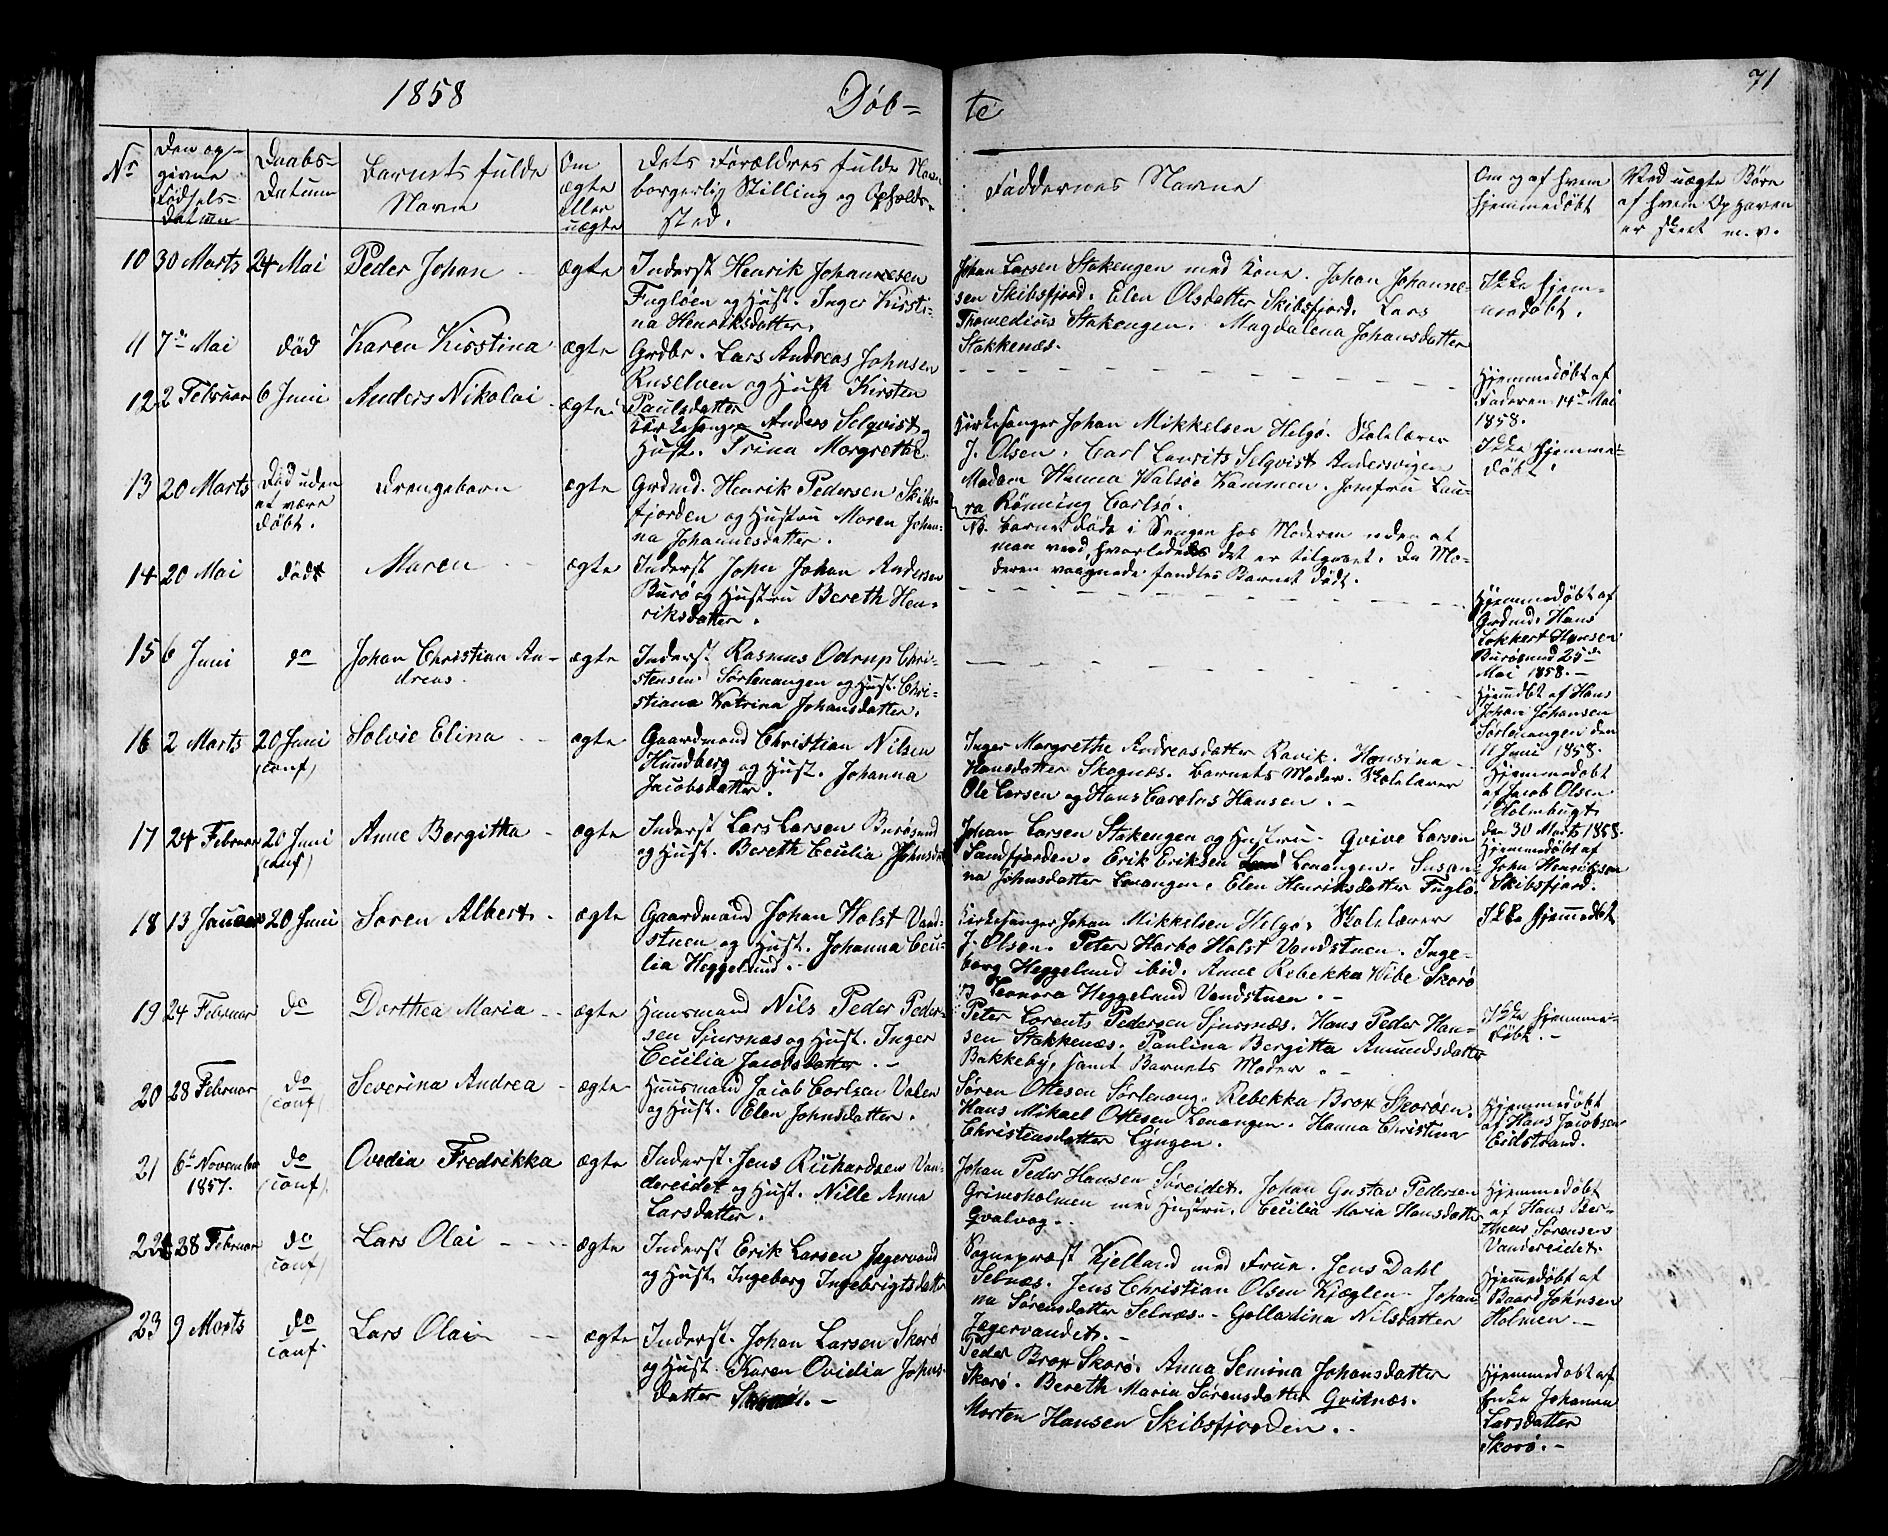 1858
Døb-
te
71
Nr
Den op-
givne
Fødsels-
datum
Daabs-
Datum
Barnets fulde
Navn
Om
ægte
eller
uægte
Dets Forældres fulde Navn
borgerlig Stilling og Opholds-
sted.
Faddernes Navne
Om og af hvem
hjemmedøbt
Ved uægte Børn
af hvem Opgaven
er skeet m. v.
10 30 Marts 24 Mai Peder Johan ægte
Inderst Henrik Johannesen
Fugløen og Hust. Inger Kirsti-
na Henriksdatter.
Johan Larsen Stakengen med Kone. Johan Johanne-
sen Skibsfjord. Elen Olsdatter Skibsfjord. Lars
Thomedius Stakengen. Magdalena Johansdatter
Stakkenæs.
Ikke hjem-
medøbt.
11 7de Mai død Karen Kirstina ægte
Grdbr. Lars Andreas Johnsen
Ruselven og Hust Kirsten
Paulsdatter
Hjemmedøbt af
Faderen 14de Mai
1858.
12 2 Februar 6 Juni Anders Nikolai ægte
Kirkesanger Anders Selqvist og
Hust. Trina Margrethe
Kirkesanger Johan Mikkelsen Helgø. Skolelærer
J. Olsen. Carl Laurits Selqvist Andersvigen
Madam Hanna Walsøe Kammen. Jomfru Lau-
ra Rønning Carlsø.
Ikke hjemme-
døbt.
13 20 Marts Død uden
at være
døbt.
Drengebarn ægte
Grdmd. Henrik Pedersen Skibs-
fjorden og Hustru Maren Johan-
na Johannesdatter.
NB. Barnet døde i Sengen hos Moderen uden at
man veed, hvorledes det er tilgaaet. Da Mo-
deren vaagnede fandtes Barnet dødt.
14 20 Mai død Maren ægte
Inderst John Johan Andersen
Burø og Hustru Bereth Hen-
riksdatter.
Hjemmedøbt af
Grdmd. Hans
Lokkert Hansen
Burøsund 25de
Mai 1858.-
15 6 Juni do Johan Christian An-
dreas.
ægte
Inderst. Rasmus Odrup Chri-
stensen Sørlenangen og Hust. Chri-
stiana Katrina Johansdatter.
Hjemdøbt af Hans
Johan Johansen
Sørlenangen den
11 Juni 1858.
16 2 Marts 20 Juni
(conf)
Solvie Elina ægte
Gaardmand Christian Nilsen
Hundberg og Hust. Johanna
Jacobsdatter.
Inger Margrethe Andreasdatter Ravik. Hansina
Hansdatter Skognæs. Barnets Moder. Skolelærer
Ole Larsen og Hans Carolus Hansen.-
Hjemmedøbt
af Jacob Olsen
Holmbugt
den 30 Marts 1858.
17 24 Februar 20 Juni
(conf)
Anne Bergitha ægte
Inderst Lars Larsen Burøsund
og Hust. Bereth Cecilia Johnsdt
Johan Larsen Stakengen og Hustru. Qvive Larsen
Sandfjorden. Erik Eriksen Lenangen. Susan-
na Johnsdatter Lenangen. Elen Henriksdatter Fuglø.
Hjemmedøbt af
John Henriksen
Skibsfjord.
18 13 Januar 20 Juni Søren Albert ægte
Gaardmand Johan Holst Vand-
stuen og Hust. Johanna Ceci-
lia Heggelund.-
Kirkesanger Johan Mikkelsen Helgø. Skolelærer
J. Olsen. Peter Harbo Holst Vandstuen. Inge-
borg Heggelund ibid. Anne Rebekka Wibe Skorø
B Leonora Heggelund Vandstuen.-
Ikke hjemmedøbt
19 24 Februar do Dorthea Maria ægte
Huusmand Nils Peder Peder-
sen Sjursnæs og Hust. Inger
Cecilia Jacobsdatter.-
Peter Lorents Pedersen Sjursnæs. Hans Peder Han-
sen Stakkenæs. Paulina Bergitta Amundsdatter
Bakkeby, samt Barnets Moder.-
Ikke hjemme-
døbt.-
20 28 Februar do
(conf)
Severina Andrea ægte
Huusmand Jacob Carlsen Valen
og Hust. Elen Johnsdatter.
Søren Ottesen Sørlenang. Rebekka Brox Skorøen.
Hans Mikael Ottesen Lenangen. Hanna Christina
Christensdatter Lyngen.
Hjemmedøbt
af Hans Jacobsen
Eidstrand.
21 6te November
1857.
do
(conf)
Ovedia Fredrikka ægte
Inderst. Jens Richardsen Van-
dereidet og Hust. Nille Anna
Larsdatter.
Johan Peder Hansen Søreidet. Johan Gustav Pedersen
Grimsholmen med Hustru. Cecilia Maria Hansdatter
Qvalvog.
Hjemmedøbt
af Hans Ber-
theus Sørensen
Vandereidet.
22 28 Februar do
(conf)
Lars Olai ægte
Inderst Erik Larsen Jegervand
og Hust. Ingeborg Ingebrigtsdatter
Sognepræst Kjelland med Frue. Jens Dahl
Selnæs. Jens Christian Olsen Kjæglen. Johan-
na Sørensdatter Selnæs. Golladina Nilsdatter
Jægervandet.-
Hjemmedøbt af
Baard Johnsen
Holmen.-
23 9 Marts do
conf.
Lars Olai ægte
Inderst. Johan Larsen Skorø
og Hust. Karen Ovidia Johns-
datter
Peder Brox Skorø. Anna Semina Johansdatter
Skorø. Bereth Maria Sørensdatter Qviknæs.
Morten Hansen Skibsfjorden.
Hjemmedøbt af
Enke Johanna
Larsdatter
Skorø.-